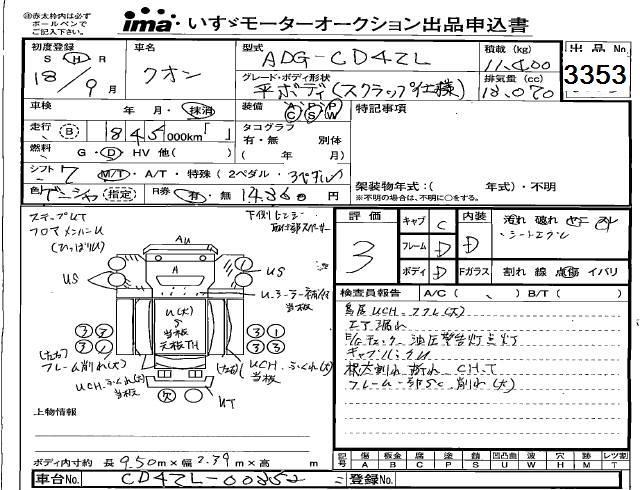 ㊟赤太枠内は必ず
ボールペンで
ご記入下さい。
ima いすゞモーターオークション出品申込書
初度登録
S H R
18 / 9 月
車名
クオン
型式
ADG-CD4ZL
グレード・ボディ形状
平ボディ(スクラップ仕様)
積載 (kg)
11,400
排気量 (cc)
13,070
出品No
3353
車検
年 月・抹消
走行 B 845 000km「 」
燃料 G・D・HV 他( )
シフト 7 M/T・A/T・特殊 (2ペダル・3ペダル)
色 ゲーシャ 指定 R券 有・無 14,360円
装備 A P P
C S W
タコグラフ
有・無 別体
( 年 月)
特記事項
架装物年式:( 年式)・不明
※不明の場合は、不明に○をする。
ステップUT
フロアメンバーU
(ひっぱりU)
下側ヒンジ
AU
A
US
US
U(大)
S
当板
天板TH
3 3
3 3
フレーム削れ(大)
UCH、ふくれ(大)
当板
UCH.ふくれ(大)
当板
欠
UT
上物情報
ボディ内寸約 長 9.50m×幅 2.39m×高 m
車台No. CD4ZL-00352
登録No.
評価
3
キャブ C
フレーム D
ボディ D
内装 D
汚れ 破れ
・シートスレ
Fガラス 割れ 線 点傷 イバリ
検査員報告 A/C ( 、 ) B/T ( )
鳥居UCH.フクレ(大)
エア漏れ
E/Gチェック、油圧警告灯点灯
キャブバックU
根太割れ 折れ CH.T
フレーム一部SC 削れ(大)
記号 傷 板金 腐 塗 錆 凹凸曲 波 穴 跡 レツ割
A B C P S U W H M T